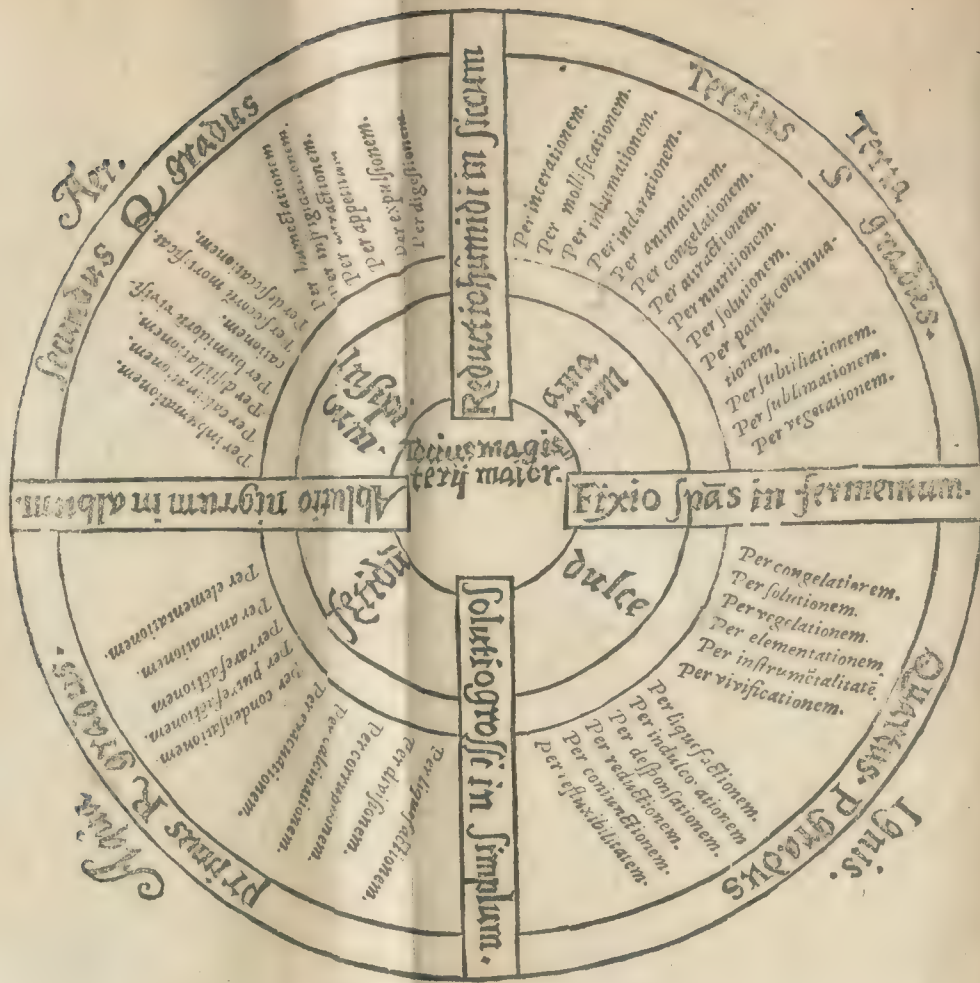 Aer.
secundus Q gradus
Tertius S gradus.
Terra
Quartus P gradus
Ignis.
primus R gradus.
Aqua
Reductio humidi in siccum
Fixio spũs in fermentum.
Solutio grossi in simplum.
Ablutio nigrum in album.
Totius magis
terij maior.
ama
rum
dulce
Per humectationem
Per infrigidationem.
Per attractionem.
Per appetitum
Per expulsionem.
Per digestionem.
Per inhumationem.
Per calcinationem.
Per distillationem.
Per humidorũ vivifi-
cationem.
Per siccorũ mortificat.
Per desiccationem.
Per incerationem.
Per mollificationem.
Per inhumationem.
Per indurationem.
Per animationem.
Per congelationem.
Per attractionem.
Per nutritionem.
Per solutionem.
Per partiũ continua-
tionem.
Per subtiliationem.
Per sublimationem.
Per vegetationem.
Per congelationem.
Per solutionem.
Per vegelationem.
Per elementationem
Per instrumẽtalitatẽ.
Per vivificationem.
Per liquefactionem.
Per indulcorationem
Per desponsationem.
Per reductionem.
Per coniunctionem.
Per refluxibilitatem.
Per elementationem.
Per animationem.
Per rarefactionem
Per putrefactionem.
Per condensationem
Per evacuationem.
Per calcinationem.
Per corruptionem.
Per divisionem.
Per liquefactionem.